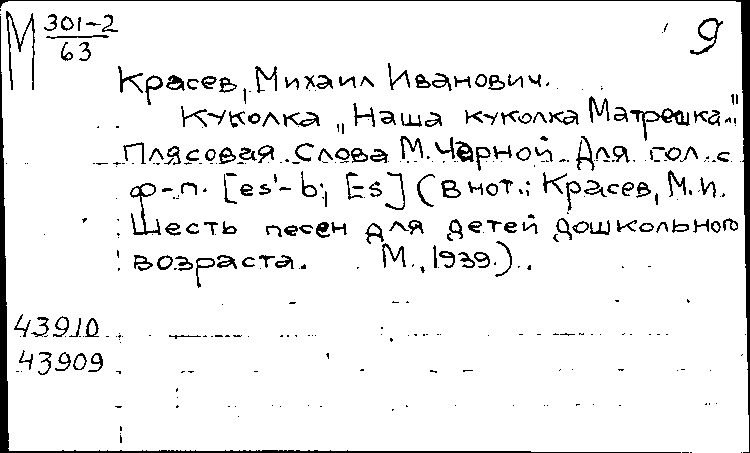 М 301-2
63
9
Красев, Михаил Иванович.
Куколка „Наша куколка Матрешка..."
Плясовая. Слова М. Чарной. Для гол. с
ф-п. [es'-b; Es] (В нот.: Красев, М.И.
Шесть песен для детей дошкольного
возраста. М., 1939.).
43910
43909